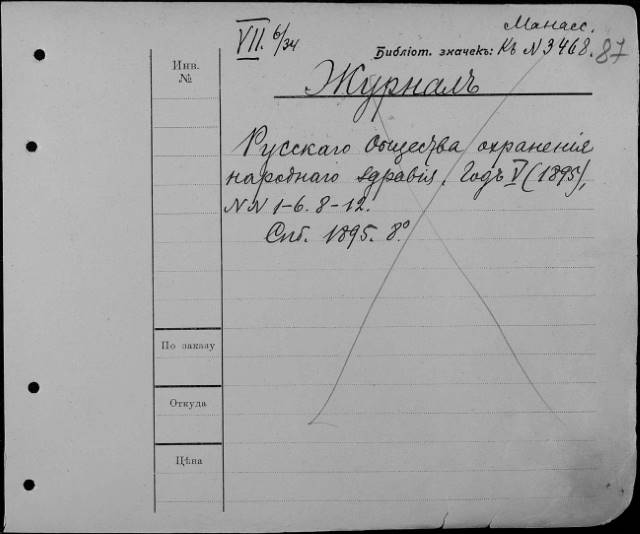 Манасс.
VII. 6/34
Библіот. значекъ: Къ N 3468. 87
Инв.
№
Журналъ
Русскаго Общества охраненія
народнаго здравія. Годъ V (1895),
NN 1-6. 8-12.
Спб. 1895. 8º
По заказу
Откуда
Цѣна